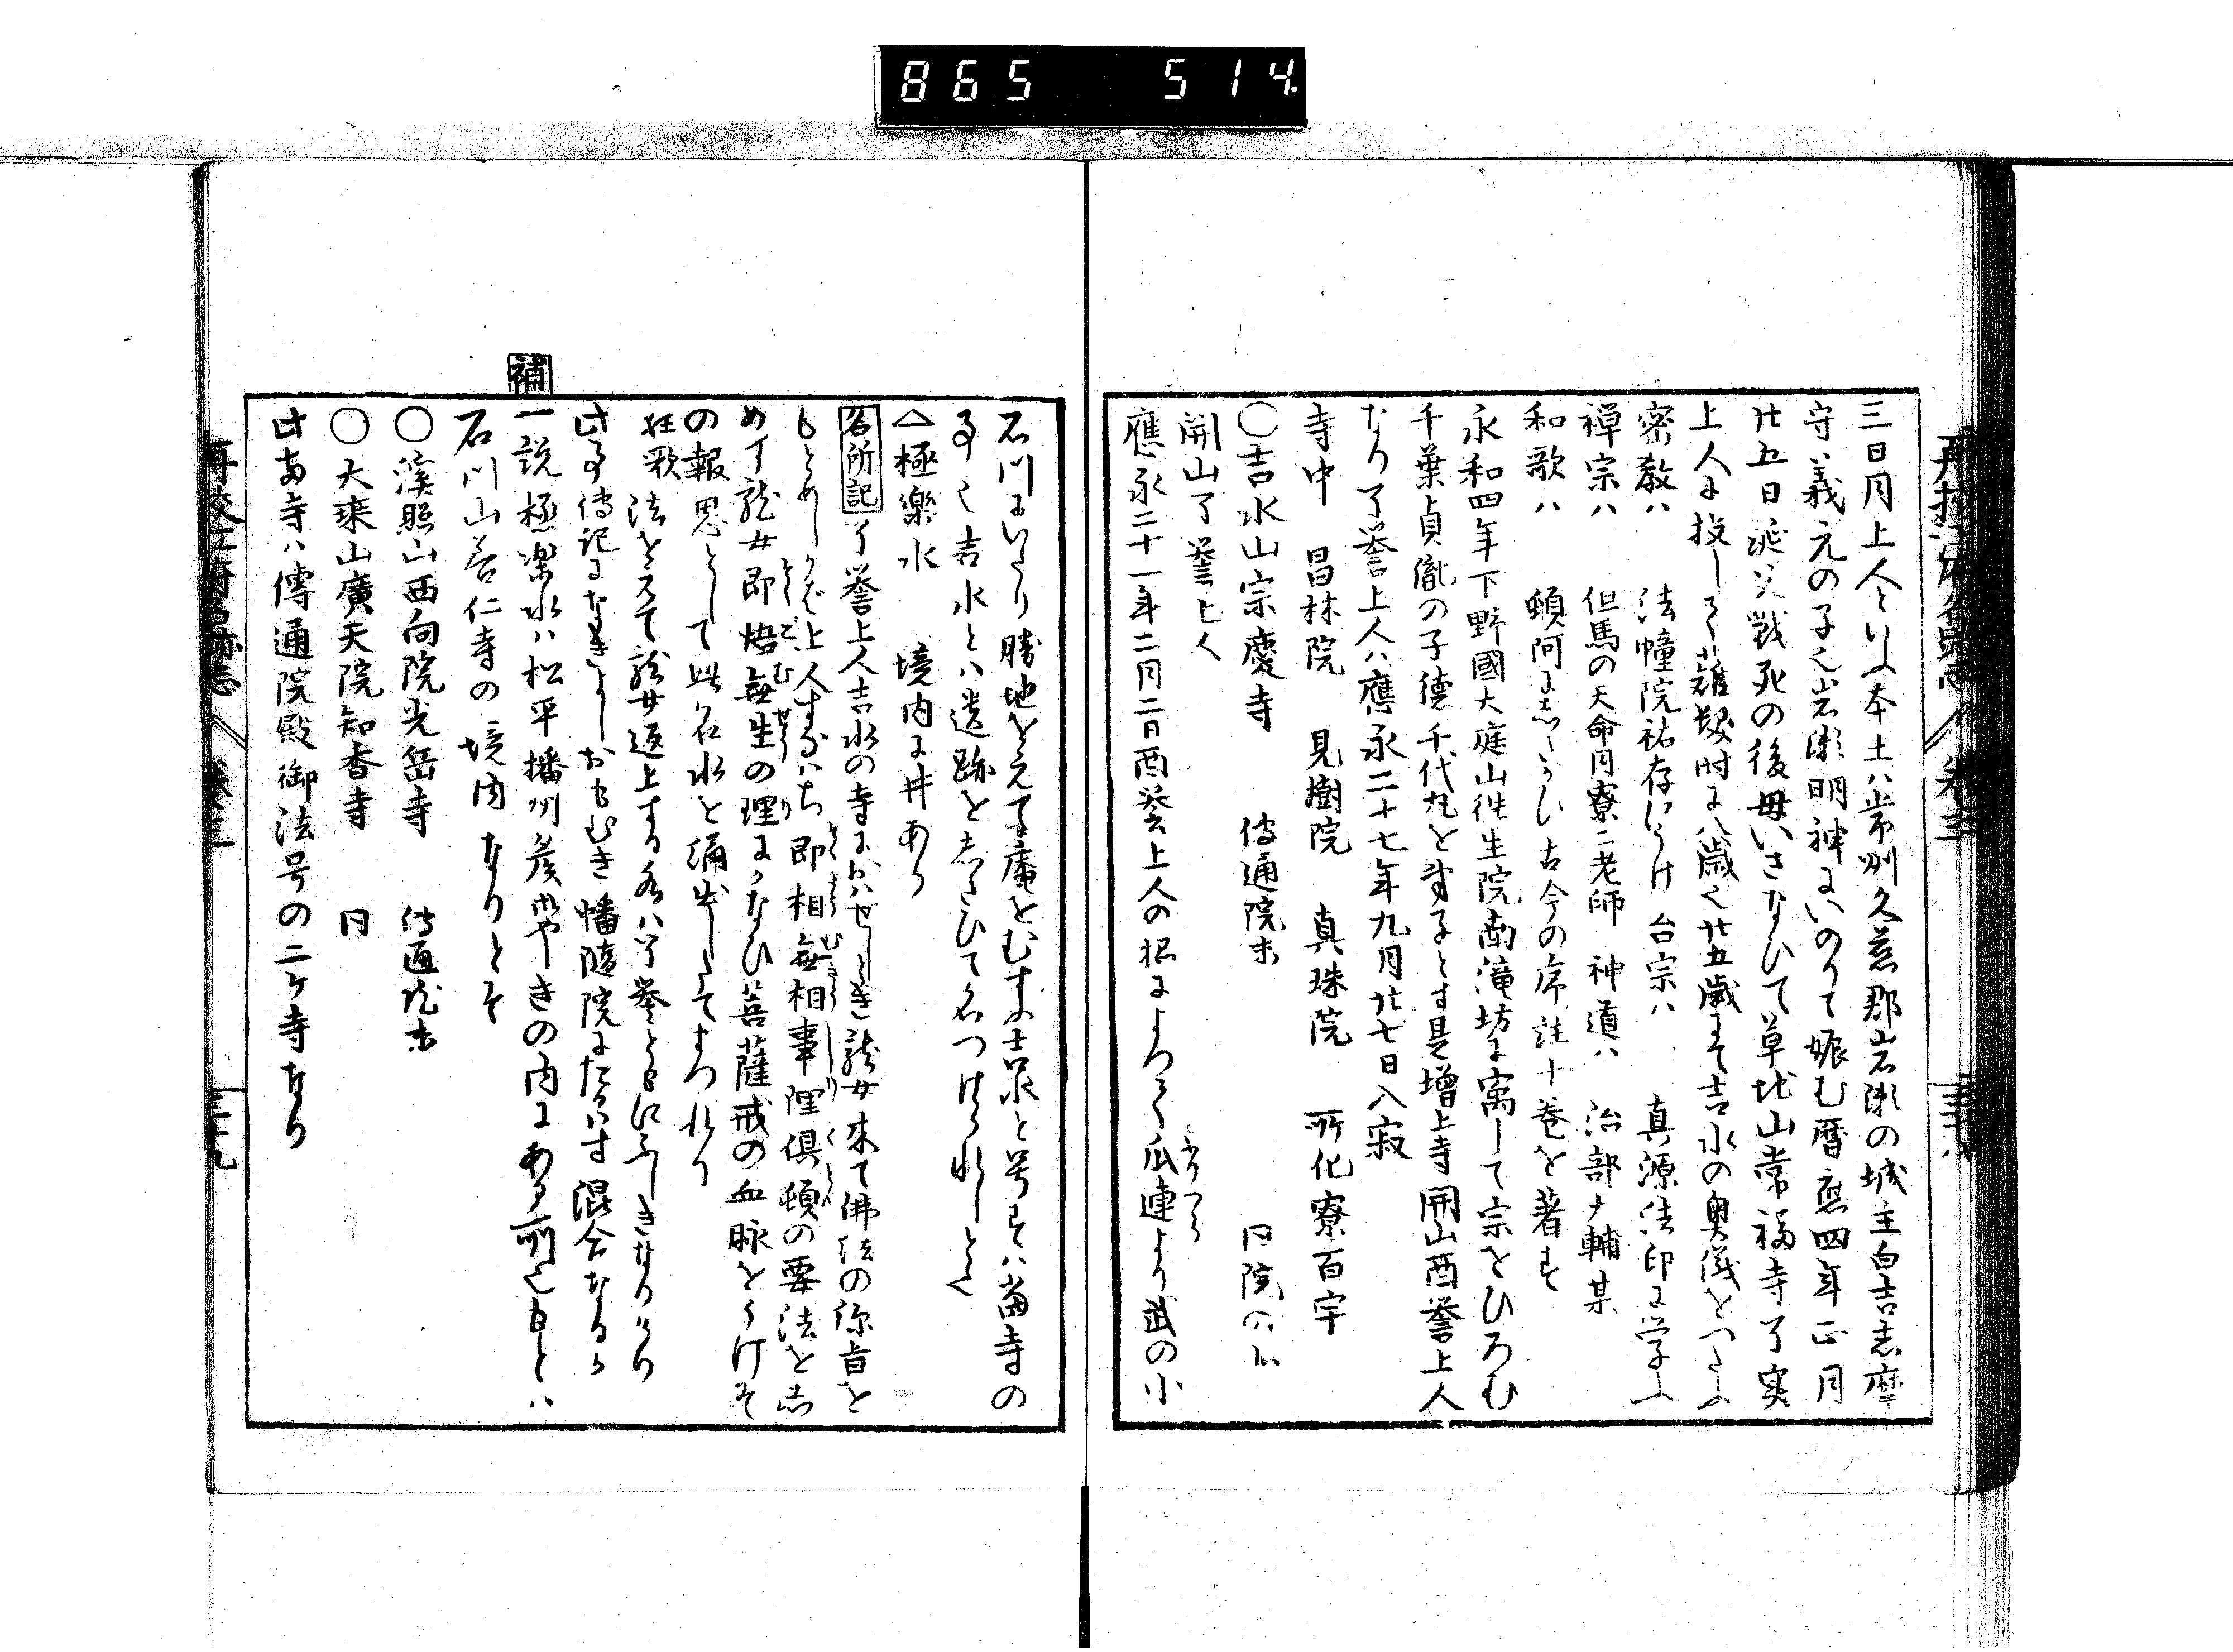 865 514
三日月上人といふ本土ハ常州久慈郡岩瀬の城主白吉志摩
守義元の子也岩瀬明神にいのりて娠む暦應四年正月
廿五日誕父戦死の後母いさなひて草地山常福寺了実
上人に投して薙髪時に八歳也廿五歳にて吉水の奥儀をつたふ
密教ハ 法幢院祐存にうけ 台宗ハ 真源法印に学ふ
禅宗ハ 但馬の天命月寮二老師 神道ハ 治部ナ輔某
和歌ハ 頓阿にしたかひ古今の序註十巻を著す
永和四年下野國大庭山往生院南滝坊に寓して宗をひろむ
千葉貞胤の子徳千代丸を弟子とす是増上寺開山酉誉上人
なり了誉上人ハ應永二十七年九月廿七日入寂
寺中 昌林院 見樹院 真珠院 所化寮百宇
〇吉水山宗慶寺 傳通院末 同院の
開山了誉上人
應永二十一年二月二日酉誉上人の招によりて瓜連より武の小
石川にいたり勝地をえて庵をむすふ吉水と号すハ當寺の
事也吉水とハ遺跡をしたひて名つけられしとそ
△極楽水 境内に井あり
名所記 了誉上人吉水の寺におハせしとき龍女来て佛法の深旨を
もとめしかば上人すなハち即相無相事理倶頓の要法をし
めす龍女即悟無生の理にかなひ菩薩戒の血脉をうけそ
の報恩として此名水を涌出したてまつれり
狂歌 法をえて龍女返上する水ハ了誉とともにふしきなりけり
此事傳記になきよしおもむき幡随院にたかハす混合なるか
補 一説極楽水ハ松平播州侯御やしきの内にある所也もとハ
石川山善仁寺の境内なりとそ
〇渓照山西向院光岳寺 傳通院末
〇大乗山廣天院知香寺 同
此両寺ハ傳通院殿御法号の二ヶ寺なり
再校江府名跡志 巻三 三十九